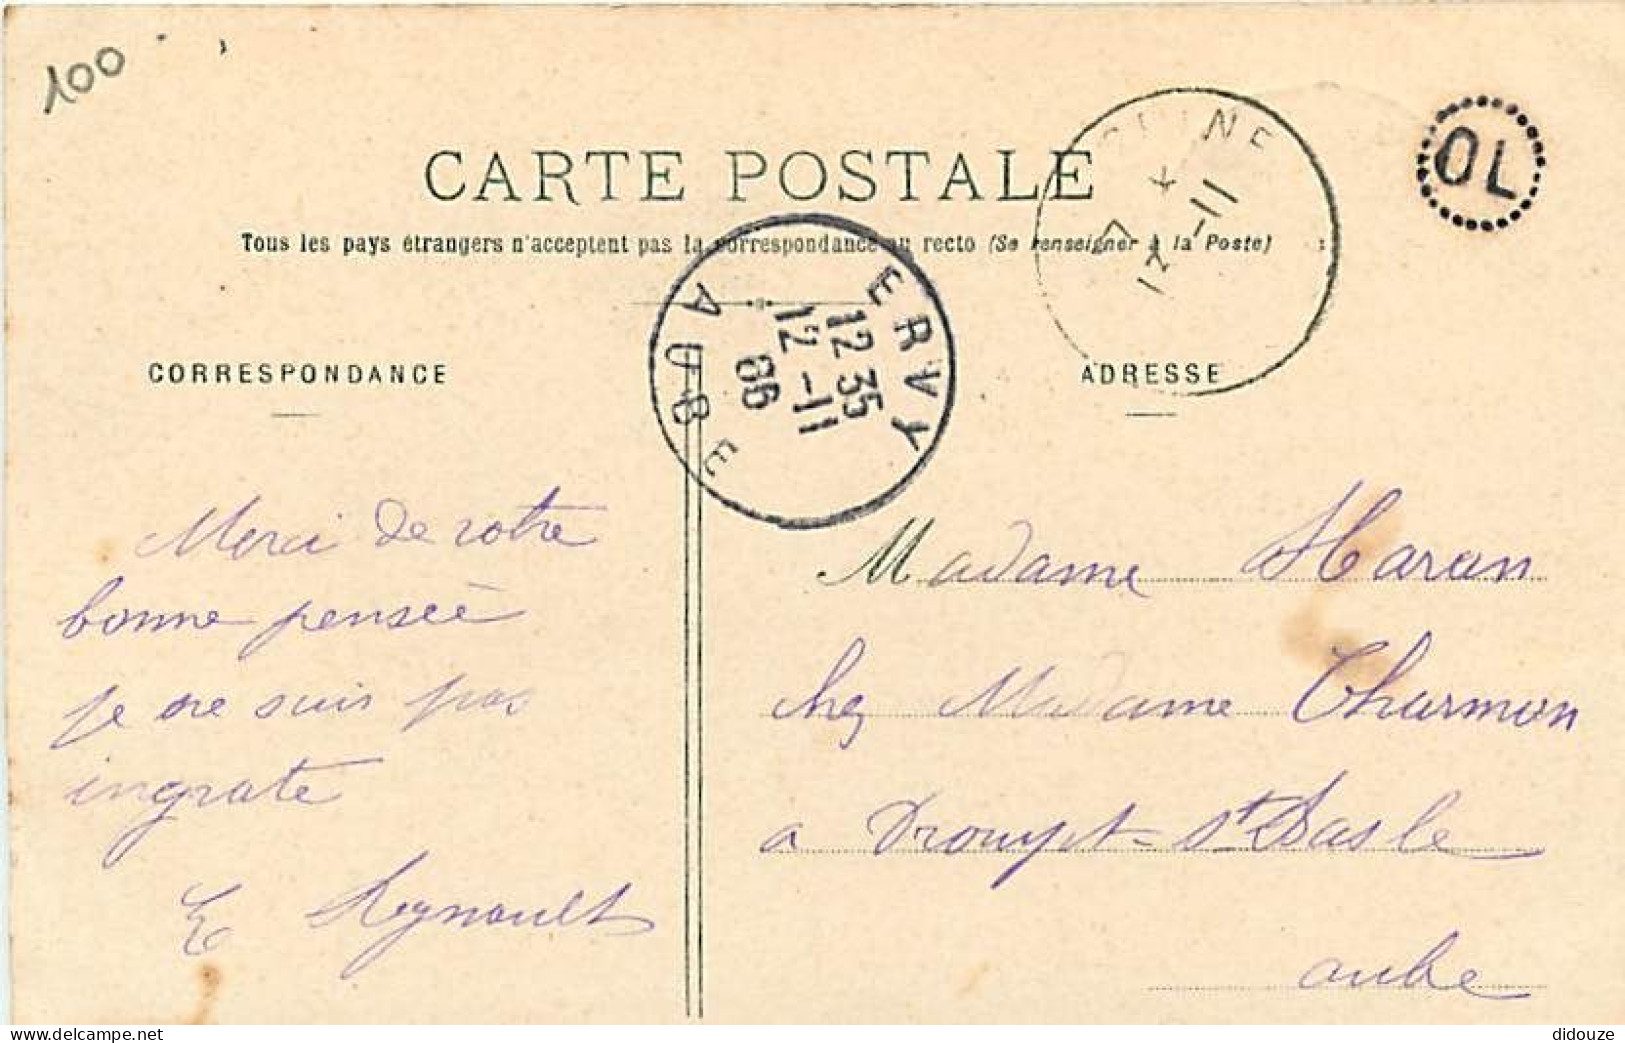 100
CARTE POSTALE
OL
Tous les pays étrangers n'acceptent pas la correspondance au recto (Se renseigner à la Poste)
7
12 -11
ERVY
12 35
12 -11
06
AUBE
CORRESPONDANCE
ADRESSE
Merci de votre
bonne pensée
je ne suis pas
ingrate
E Regnault
Madame Haran
chez Madame Charmon
a Droupt-St Basle
aube
didouze